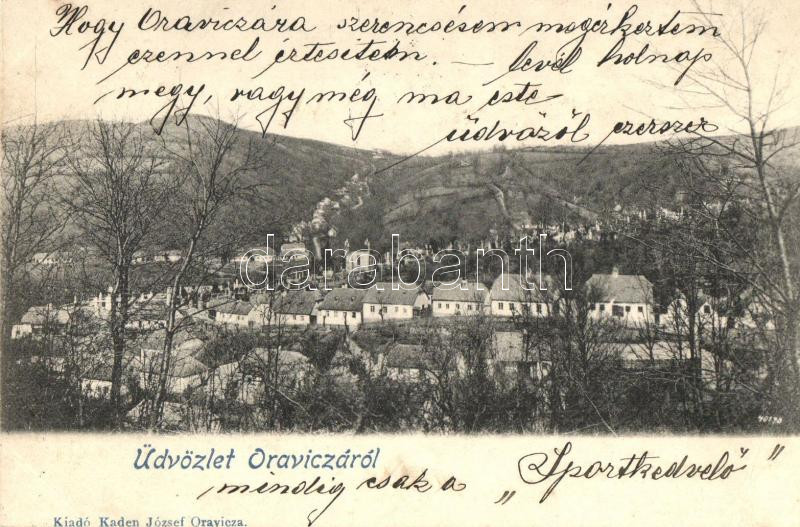 Hogy Oraviczára szerencsésen megérkeztem
ezennel értesitem. — levél holnap
megy, vagy még ma este
üdvözöl ezerszer
darabanth
40190
Üdvözlet Oraviczáról
mindig csak a „Sportkedvelő"
Kiadó Kaden József Oravicza.